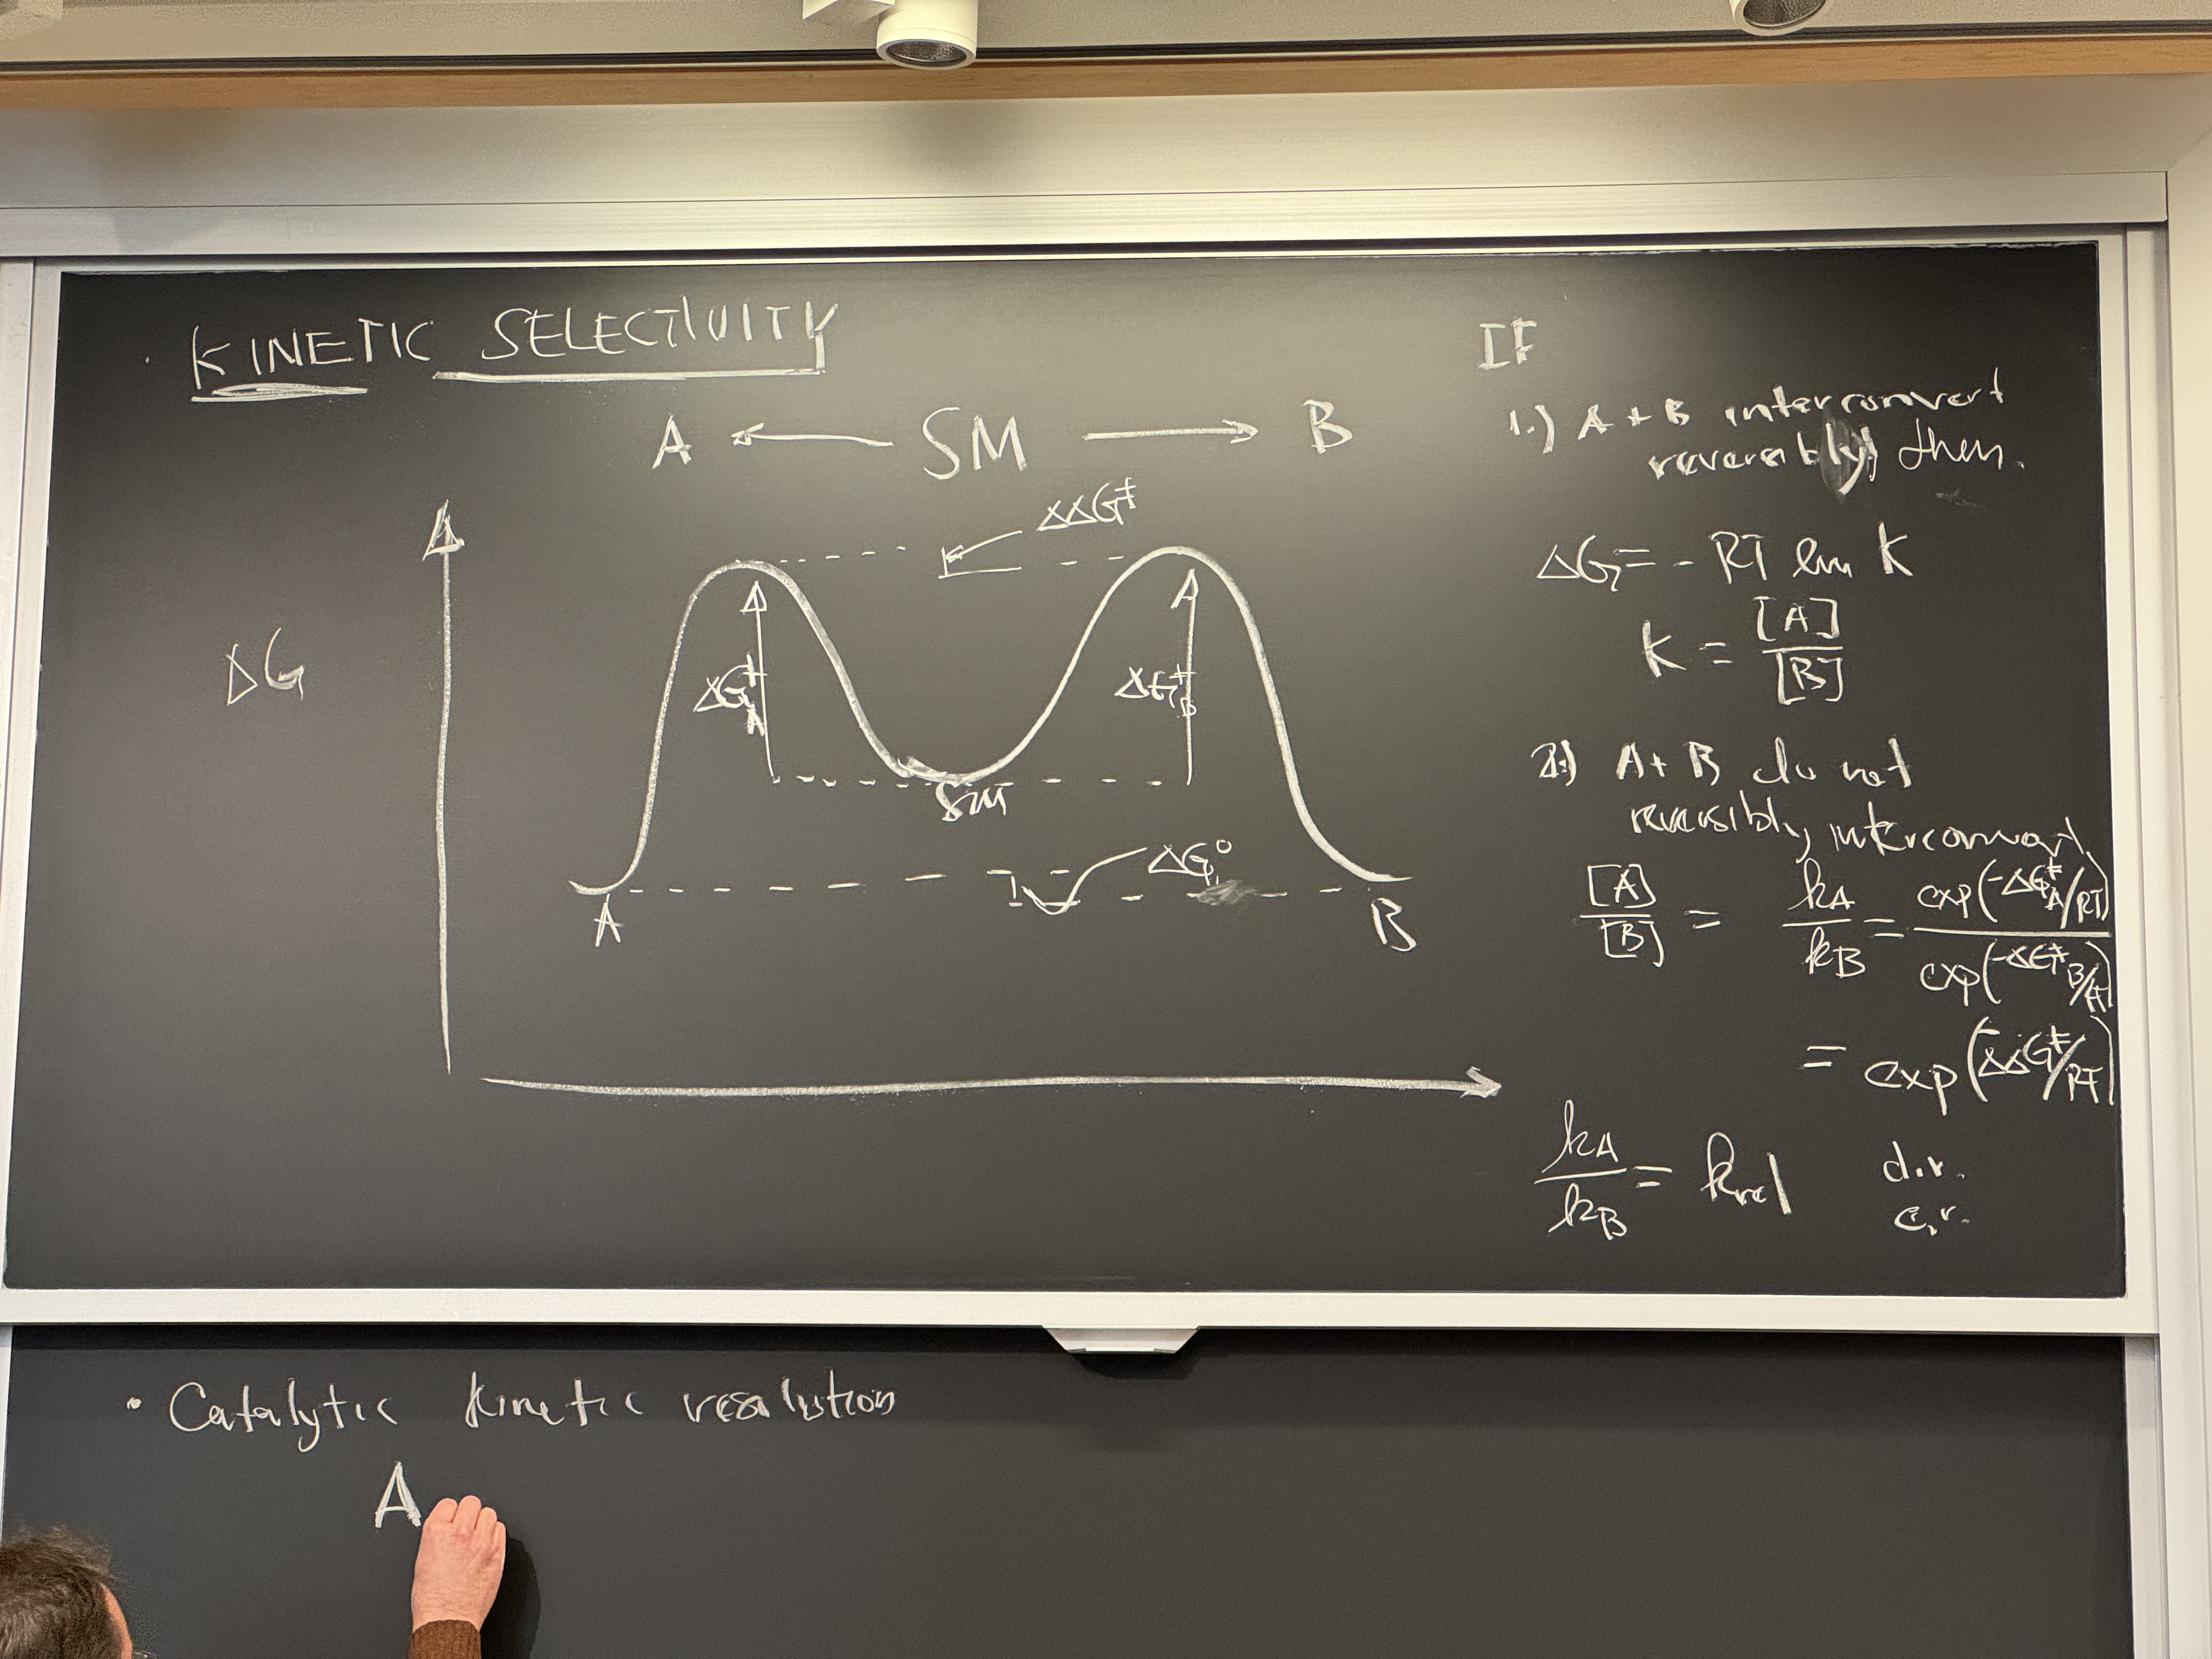 KINETIC SELECTIVITY
A ← SM → B
ΔΔG‡
ΔG
ΔG‡A
ΔG‡B
SM
ΔG°
A
B
IF
1.) A + B interconvert
reversibly, then.
ΔG = - RT ln K
K = [A]/[B]
2.) A + B do not
reversibly interconvert
[A]/[B] = kA/kB = exp(-ΔG‡A/RT)/exp(-ΔG‡B/RT)
= exp(ΔΔG‡/RT)
kA/kB = krel d.r.
e.r.
• Catalytic kinetic resolution
A